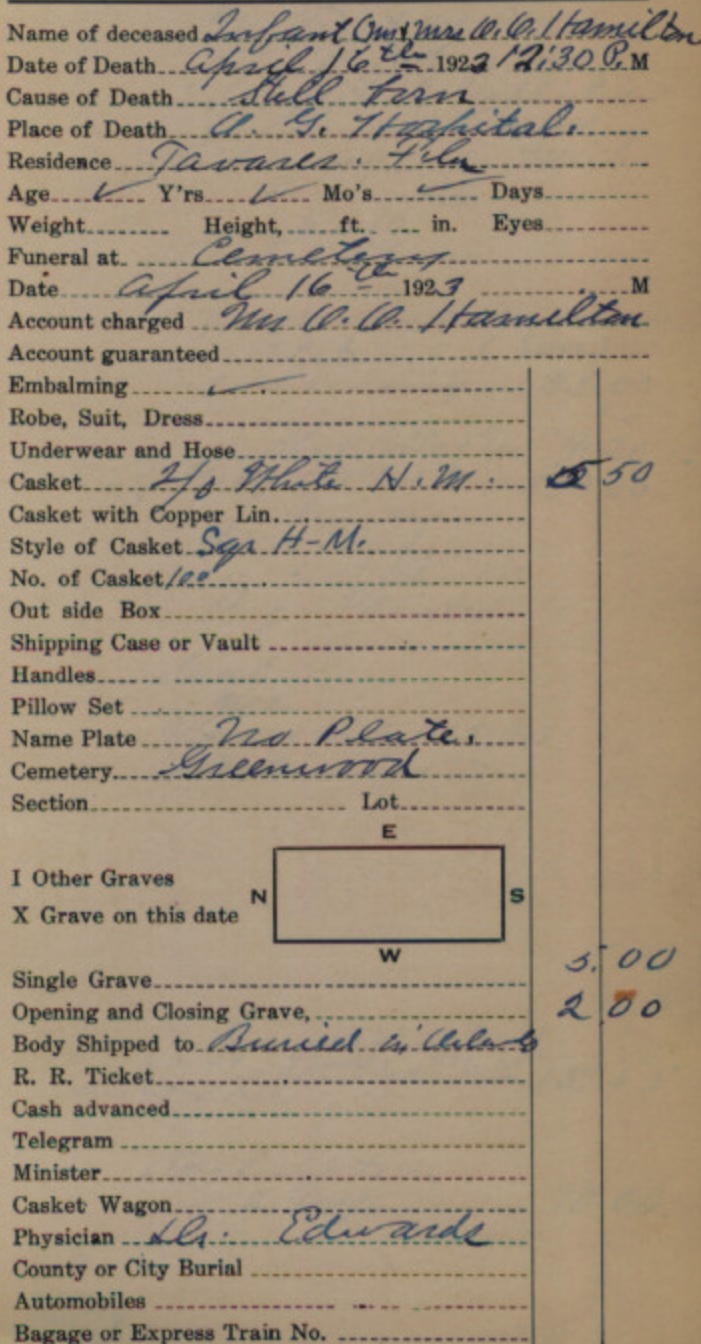 Name of deceased Infant Mr & Mrs O. O. Hamilton
Date of Death April 16th 1923 12:30 P. M
Cause of Death Still born
Place of Death O. G. Hospital.
Residence Tavares. Fla
Age ✓ Y'rs ✓ Mo's ✓ Days
Weight Height, ft. in. Eyes
Funeral at Cemetery
Date April 16th 1923 M
Account charged Mr O. O. Hamilton
Account guaranteed
Embalming ✓
Robe, Suit, Dress
Underwear and Hose
Casket 2/0 White H. M. 50
Casket with Copper Lin.
Style of Casket Sqr H-M.
No. of Casket 100
Out side Box
Shipping Case or Vault
Handles
Pillow Set
Name Plate No Plate.
Cemetery Greenwood
Section Lot
E
I Other Graves
N S
X Grave on this date
W
Single Grave 5.00
Opening and Closing Grave, 2 00
Body Shipped to Buried in Orlando
R. R. Ticket
Cash advanced
Telegram
Minister
Casket Wagon
Physician Dr. Edwards
County or City Burial
Automobiles
Bagage or Express Train No.